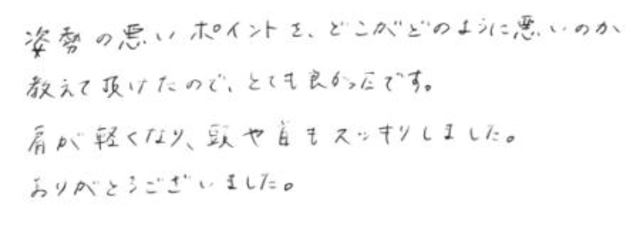 姿勢の悪いポイントを、どこがどのように悪いのか
教えて頂けたので、とても良かったです。
肩が軽くなり、頭や首もスッキリしました。
ありがとうございました。